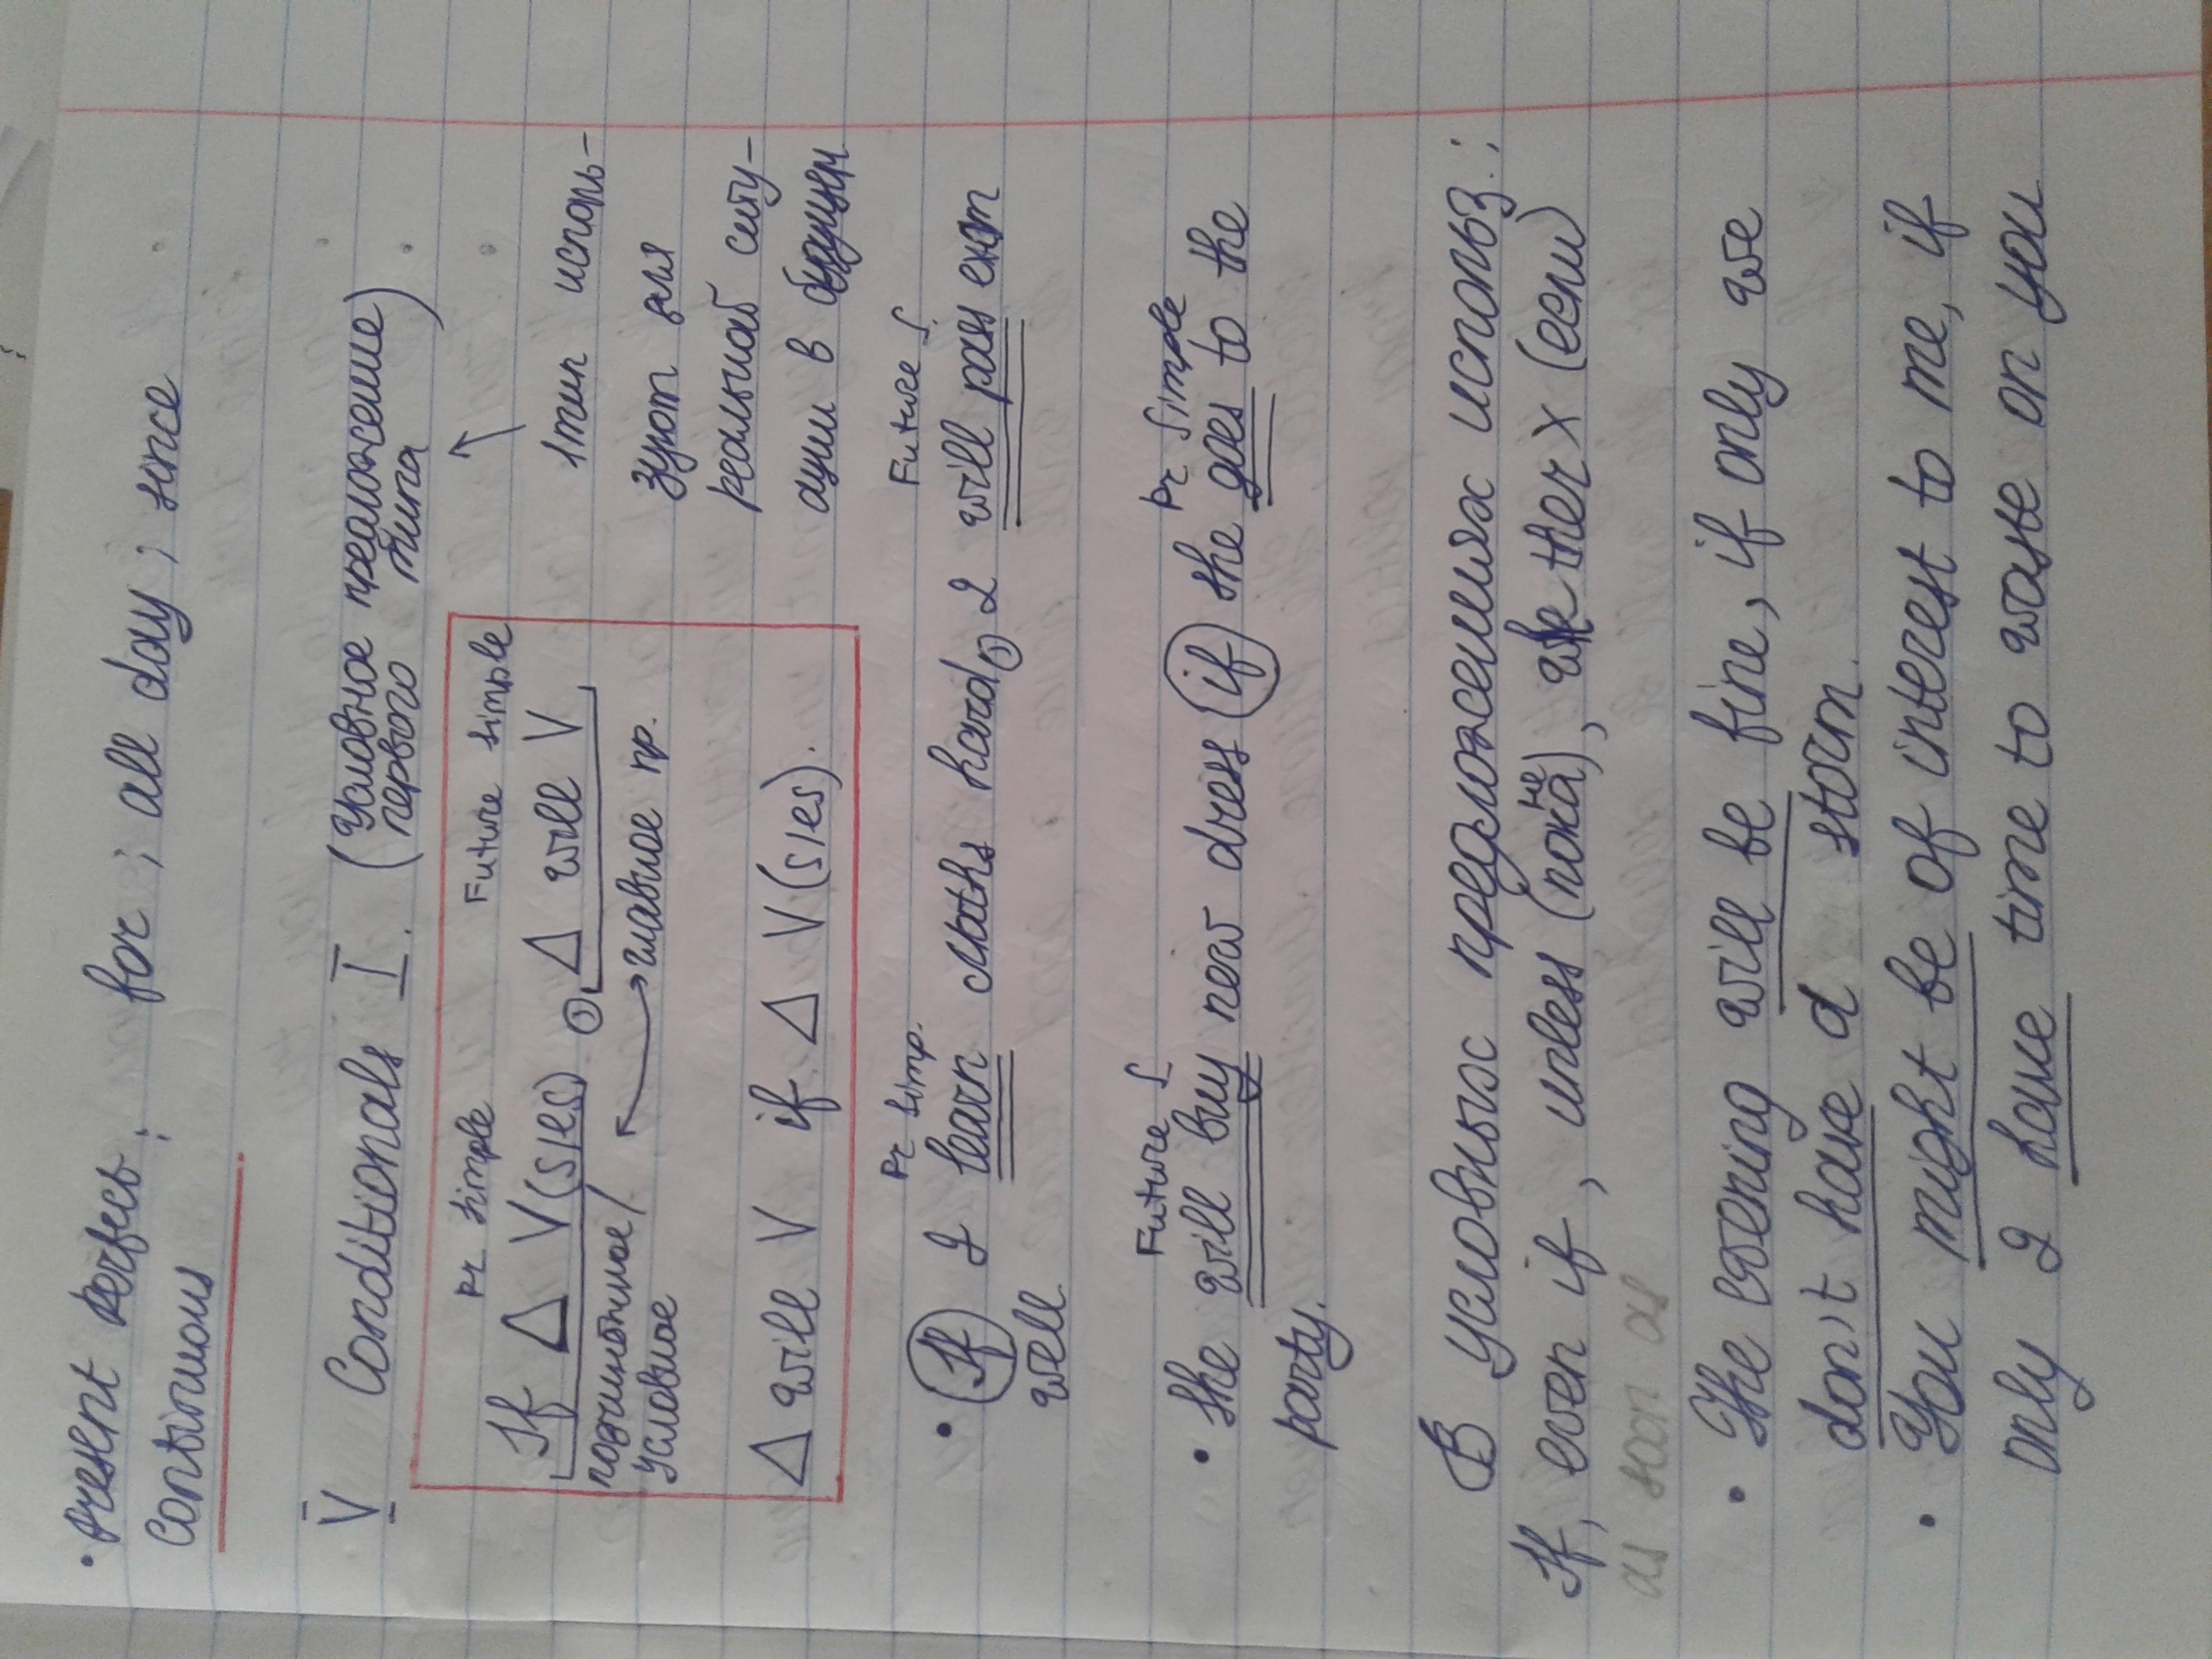 • Present Perfect
Continuous : for ; all day ; since
V Conditionals I. (Условное предложение
первого типа)
Pr simple Future simple
If △ V(s/es) , △ will V
подчинённое/ главное пр.
условное
△ will V if △ V(s/es).
1 тип исполь-
зуют для
реальной ситу-
ации в будущем
Pr simp. Future S.
• If I learn Maths hard, I will pass
well
Future S Pr Simple
• She will buy new dress if she goes to the
party.
В условных предложениях использ.:
If, even if, unless (пока не), whether x (если)
as soon as
• The evening will be fine, if only we
don't have a storm.
• You might be of interest to me, if
only I have time to waste on you